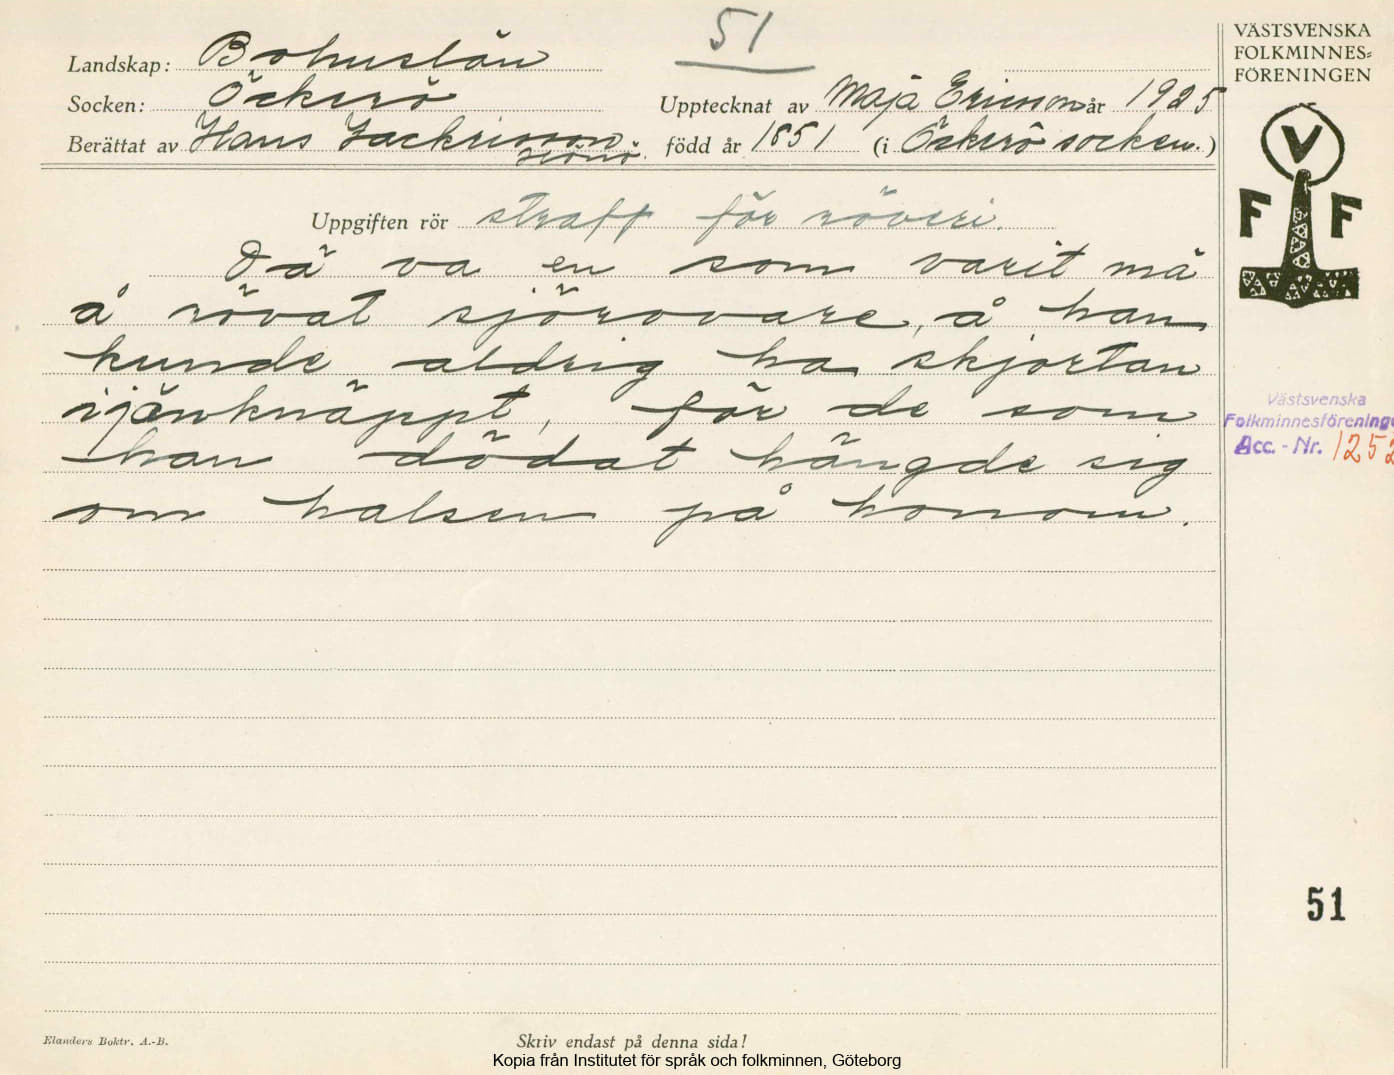 51
VÄSTSVENSKA
FOLKMINNES=
FÖRENINGEN
Landskap: Bohuslän
Socken: Öckerö
Upptecknat av Maja Ericson år 1925
Berättat av Hans Zackrisson
Hönö.
född år 1851 (i Öckerö socken.)
V
F F
Uppgiften rör straff för röveri.
Dä va en som varit mä
å rövat sjörovare, å han
kunde aldrig ha skjortan
ijänknäppt, för de som
han dödat hängde sig
om halsen på honom.
Västsvenska
Folkminnesförening
Acc. - Nr. 1252
51
Elanders Boktr. A.-B.
Skriv endast på denna sida!
Kopia från Institutet för språk och folkminnen, Göteborg